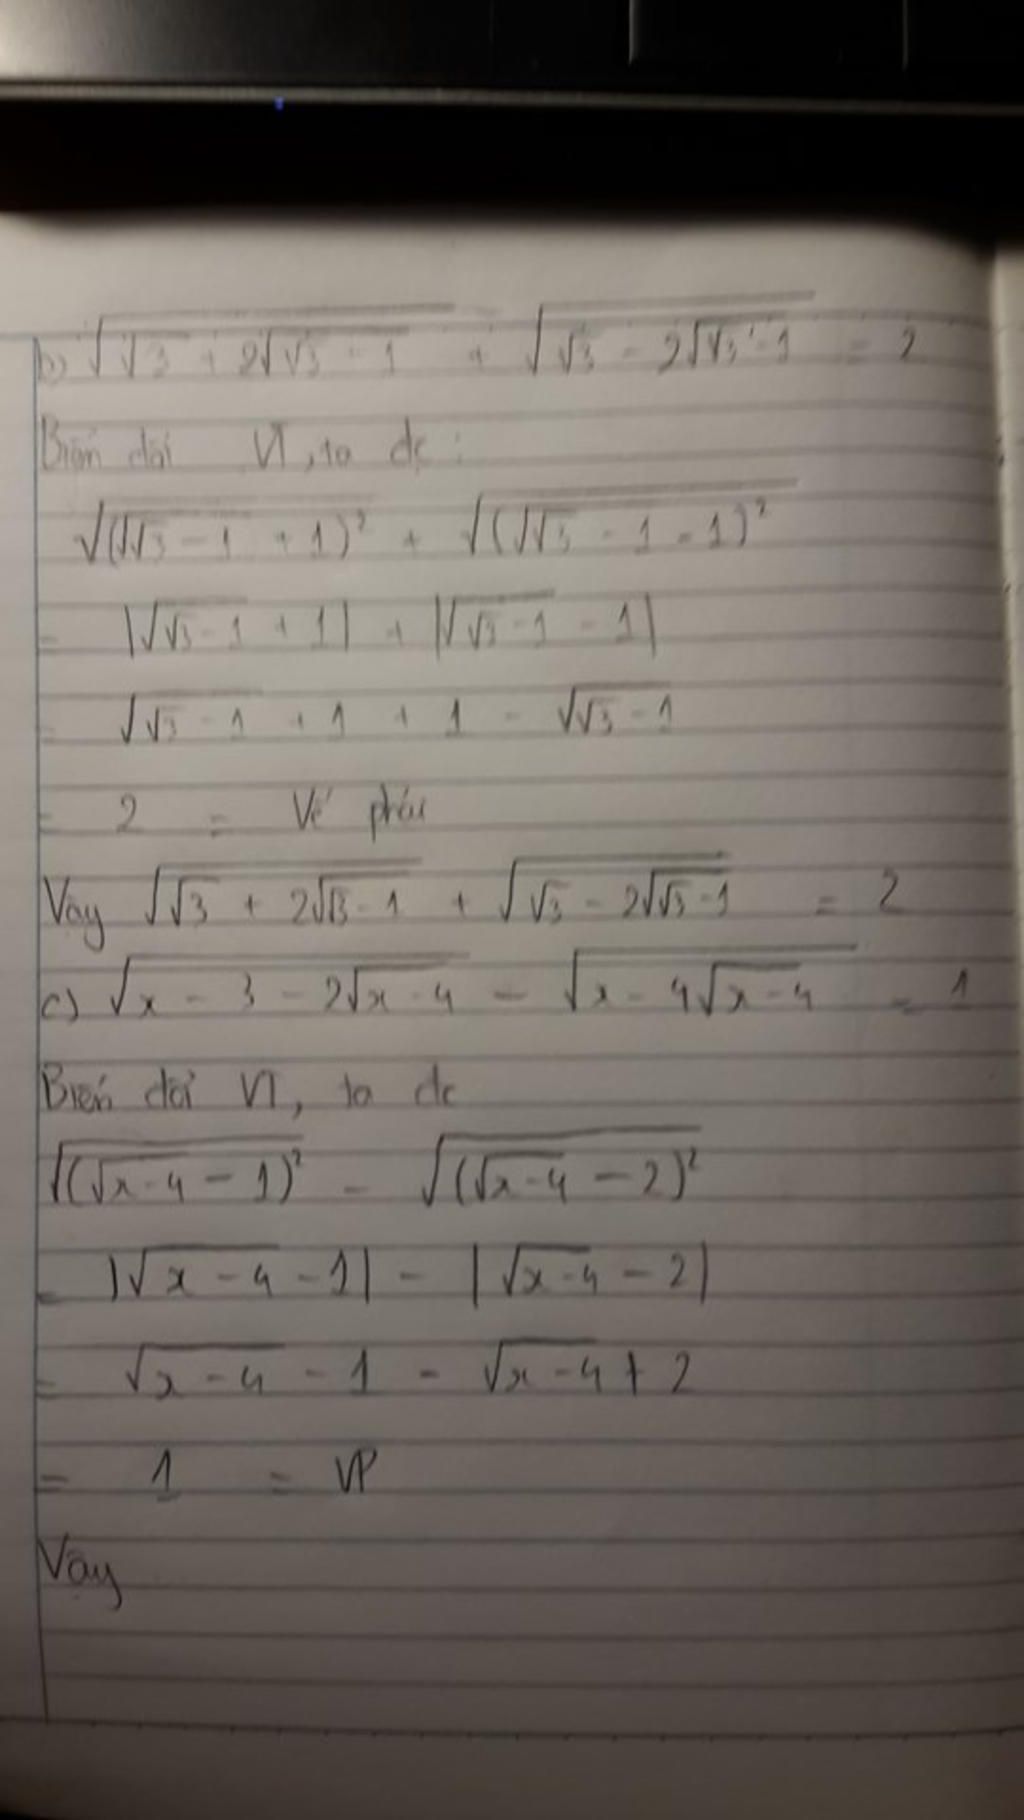 b) √(√3 + 2√(√3 - 1)) + √(√3 - 2√(√3 - 1)) = 2
Biến đổi VT, ta dc :
√((√(√3 - 1) + 1)²) + √((√(√3 - 1) - 1)²)
= |√(√3 - 1) + 1| + |√(√3 - 1) - 1|
= √(√3 - 1) + 1 + 1 - √(√3 - 1)
= 2 = Vế phải
Vậy √(√3 + 2√(√3 - 1)) + √(√3 - 2√(√3 - 1)) = 2
c) √(x - 3 - 2√(x - 4)) - √(x - 4√(x - 4)) = 1
Biến đổi VT, ta dc
√((√(x - 4) - 1)²) - √((√(x - 4) - 2)²)
= |√(x - 4) - 1| - |√(x - 4) - 2|
= √(x - 4) - 1 - √(x - 4) + 2
= 1 = VP
Vậy